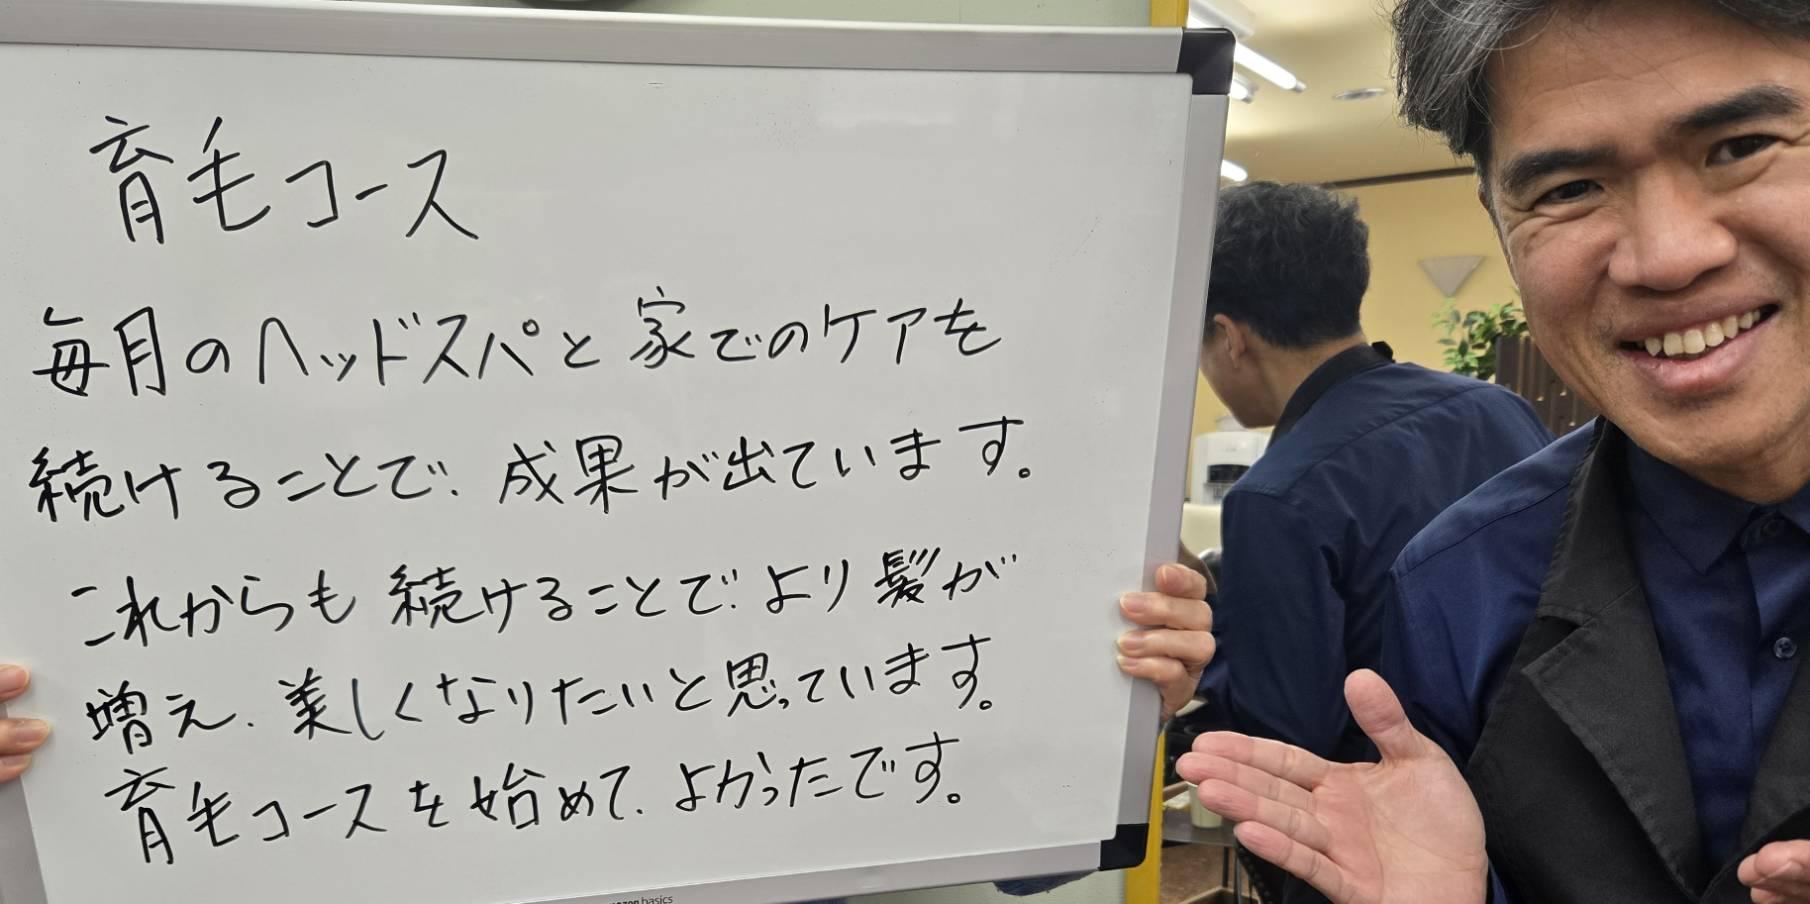 育毛コース
毎月のヘッドスパと家でのケアを
続けることで、成果が出ています。
これからも続けることで、より髪が
増え、美しくなりたいと思っています。
育毛コースを始めて、よかったです。
amazon basics